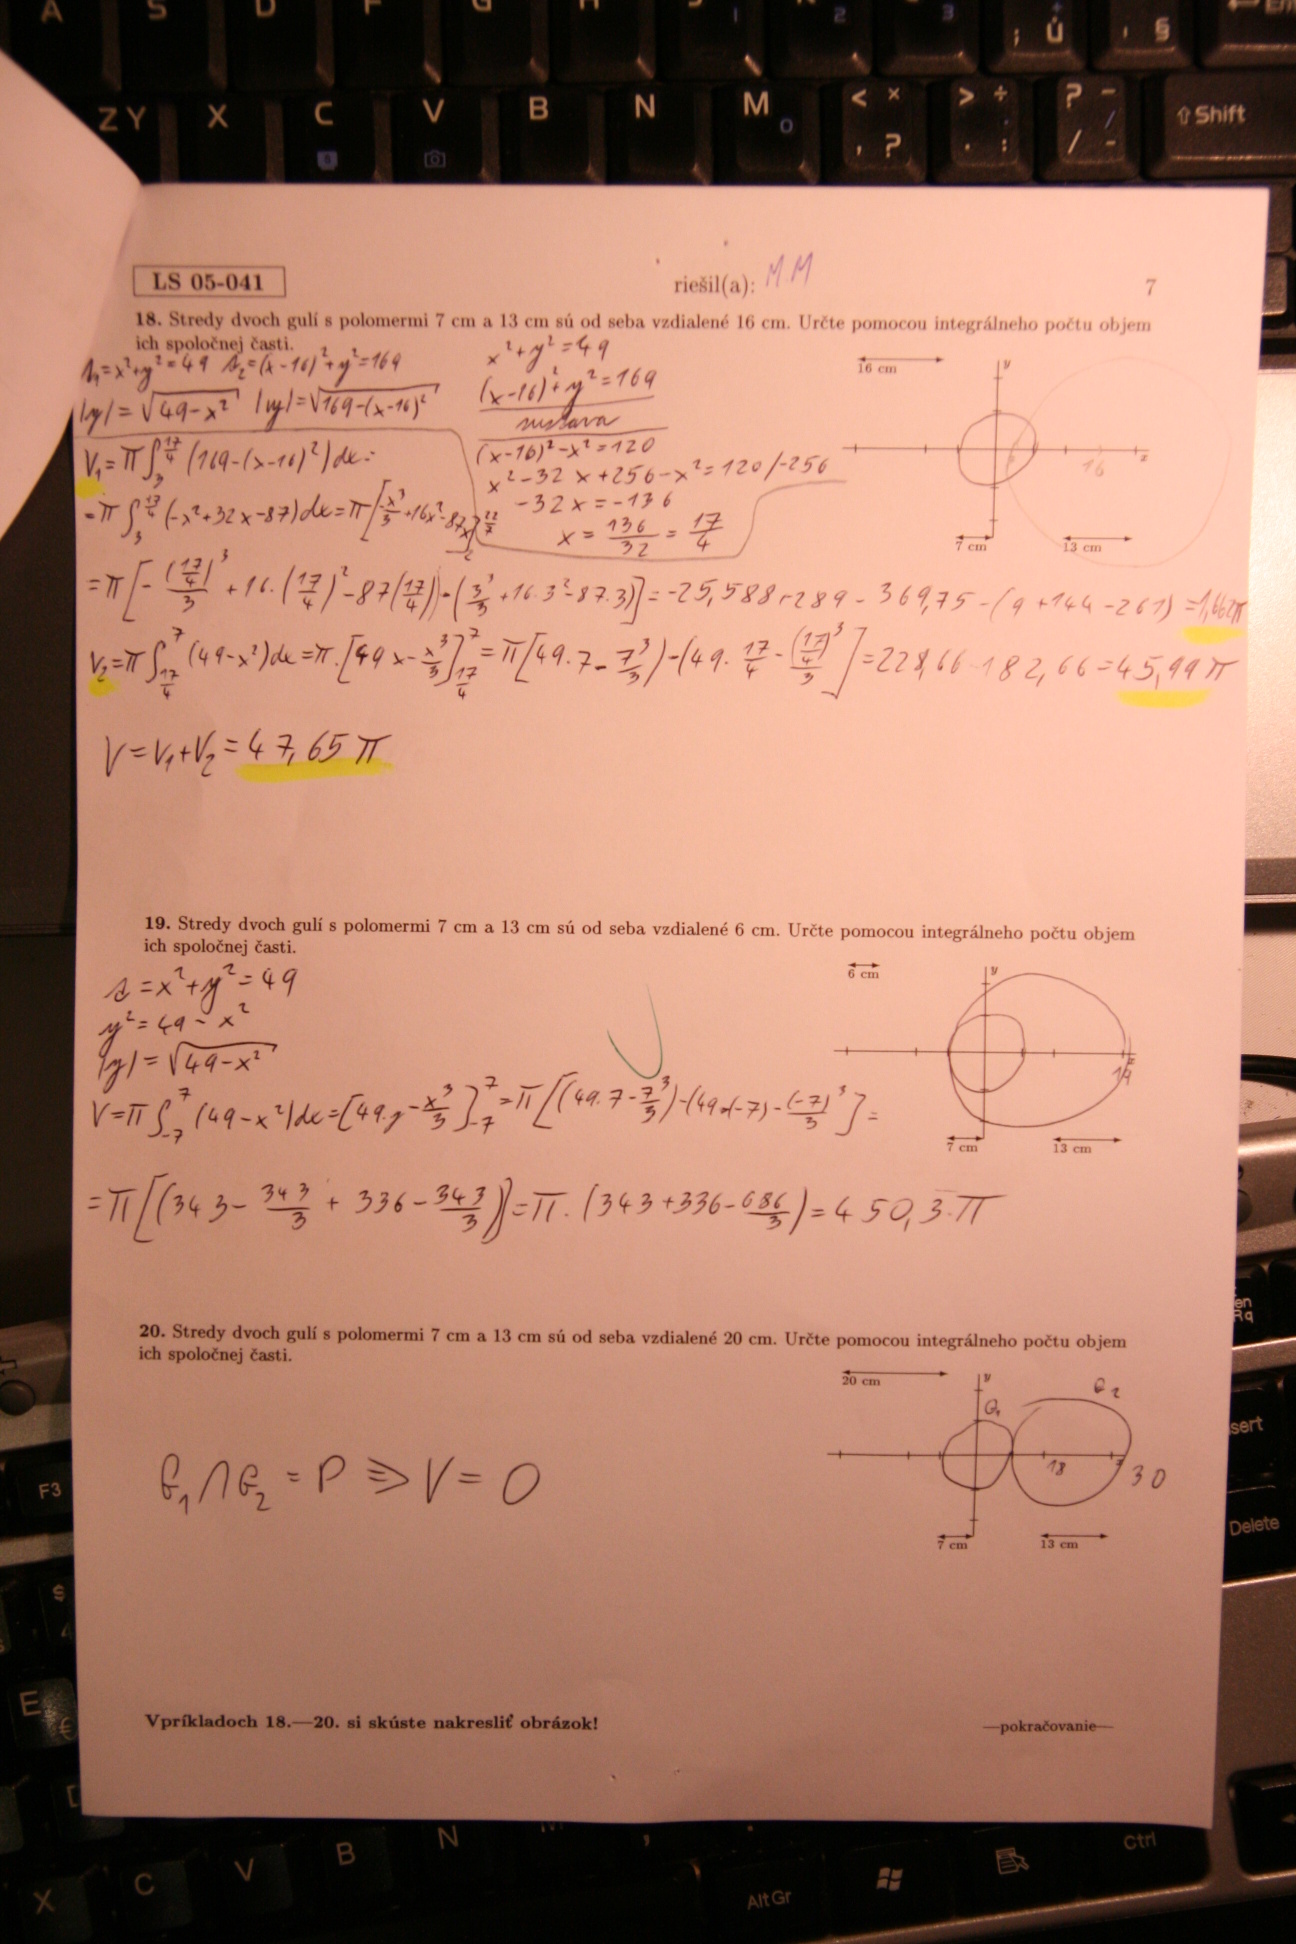 A S D F G H
1 2 3 ; Ú , §
ZY X C V B N M 0 < × , ? > ÷ . : ? - / / - ⇧ Shift
LS 05-041 riešil(a): M.M 7
18. Stredy dvoch gulí s polomermi 7 cm a 13 cm sú od seba vzdialené 16 cm. Určte pomocou integrálneho počtu objem
ich spoločnej časti.
s₁=x²+y²=49 s₂=(x-16)²+y²=169
|y|=√(49-x²) |y|=√(169-(x-16)²)
x²+y²=49
(x-16)²+y²=169
sustava
(x-16)²-x²=120
x²-32x+256-x²=120/-256
-32x=-136
x=136/32=17/4
16 cm
y
16 x
7 cm 13 cm
V₁=π∫₃^(17/4)(169-(x-16)²)dx=
=π∫₃^(17/4)(-x²+32x-87)dx=π[-x³/3+16x²-87x]
=π[-(17/4)³/3+16.(17/4)²-87(17/4))-(3³/3+16.3²-87.3)]=-25,588+289-369,75-(9+144-261)=1,662π
V₂=π∫_(17/4)^7(49-x²)dx=π.[49x-x³/3]_(17/4)^7=π[49.7-7³/3)-(49.17/4-(17/4)³/3]=228,66-182,66=45,99π
V=V₁+V₂=47,65π
19. Stredy dvoch gulí s polomermi 7 cm a 13 cm sú od seba vzdialené 6 cm. Určte pomocou integrálneho počtu objem
ich spoločnej časti.
s=x²+y²=49
y²=49-x²
|y|=√(49-x²)
6 cm
y
x
19
7 cm 13 cm
V=π∫₋₇^7(49-x²)dx=[49.y-x³/3]₋₇^7=π[(49.7-7³/3)-(49.(-7)-(-7)³/3]=
=π[(343-343/3+336-343/3)]=π.(343+336-686/3)=450,3.π
20. Stredy dvoch gulí s polomermi 7 cm a 13 cm sú od seba vzdialené 20 cm. Určte pomocou integrálneho počtu objem
ich spoločnej časti.
G₁∩G₂=P⇒V=0
20 cm
y
G₁ G₂
18 x 30
7 cm 13 cm
Vpríkladoch 18.—20. si skúste nakresliť obrázok!
—pokračovanie—
F3
$
4
E
€
sert
Delete
X C V B N , . AltGr Ctrl